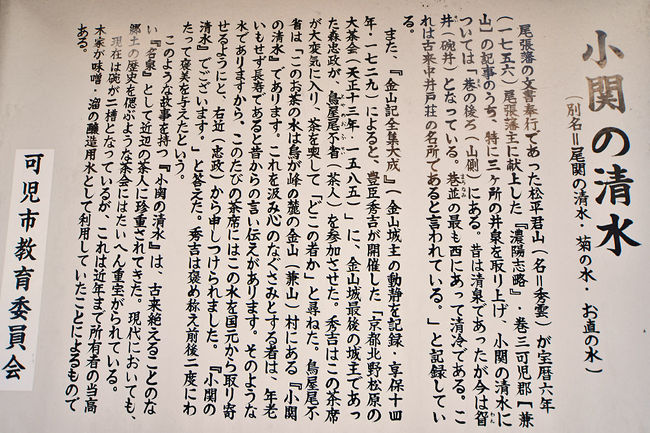 小関の清水
(別名＝尾関の清水・菊の水・お直の水)
尾張藩の文書奉行であった松平君山(名＝秀雲)が宝暦六年
(一七五六)尾張藩主に献上した『濃陽志略』・巻三可児郡［兼
山］の記事のうち、特に三ヶ所の井泉を取り上げ、小関の清水に
ついては「巷の後ろ(山側)にある。昔は清泉であったが今は智
井(碗井)となっている。巷並の最も西にあって清冷である。こ
れは古来中井戸荘の名所であると言われている。」と記録してい
る。
また、『金山記全集大成』(金山城主の動静を記録・享保十四
年・一七二九)によると、豊臣秀吉が開催した「京都北野松原の
大茶会(天正十三年・一五八五)」に、金山城最後の城主であっ
た森忠政が、鳥屋尾不省(茶人)を参加させた。秀吉はこの茶席
が大変気に入り、茶を喫して「どこの者か」と尋ねた。鳥屋尾不
省は「このお茶の水は烏が峰の麓の金山(兼山)村にある『小関
の清水』であります。これを汲み心のなぐさみとする者は、年老
いもせず長寿であると昔からの言い伝えがあります。そのような
水でありますから、このたびの茶席にはこの水を国元から取り寄
せるようにと、右近(忠政)から申しつけられました。『小関の
清水』でございます。」と答えた。秀吉は褒め称え前後二度にわ
たって褒美を与えたという。
このような故事を持つ『小関の清水』は、古来絶えることのな
い『名泉』として近辺の茶人に珍重されてきた。現代においても、
郷土の歴史を偲ぶような茶会にはたいへん重宝がられている。
現在は碗が二槽となっているが、これは近年まで所有者の当高
木家が味噌・溜の醸造用水として利用していたことによるもので
ある。
可児市教育委員会